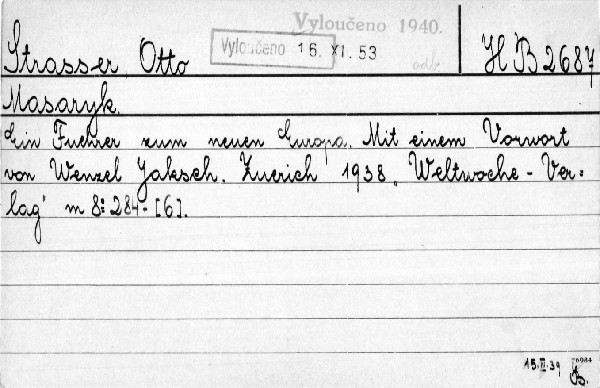 Vyloučeno 1940.
Vyloučeno 16. XI. 53
Strasser Otto
H B 2687
Masaryk.
Ein Fuehrer zum neuen Europa. Mit einem Vorwort
von Wenzel Jaksch. Zuerich 1938. "Weltwoche - Ver-
lag" m 8: 284-[6].
15.II.39
B.